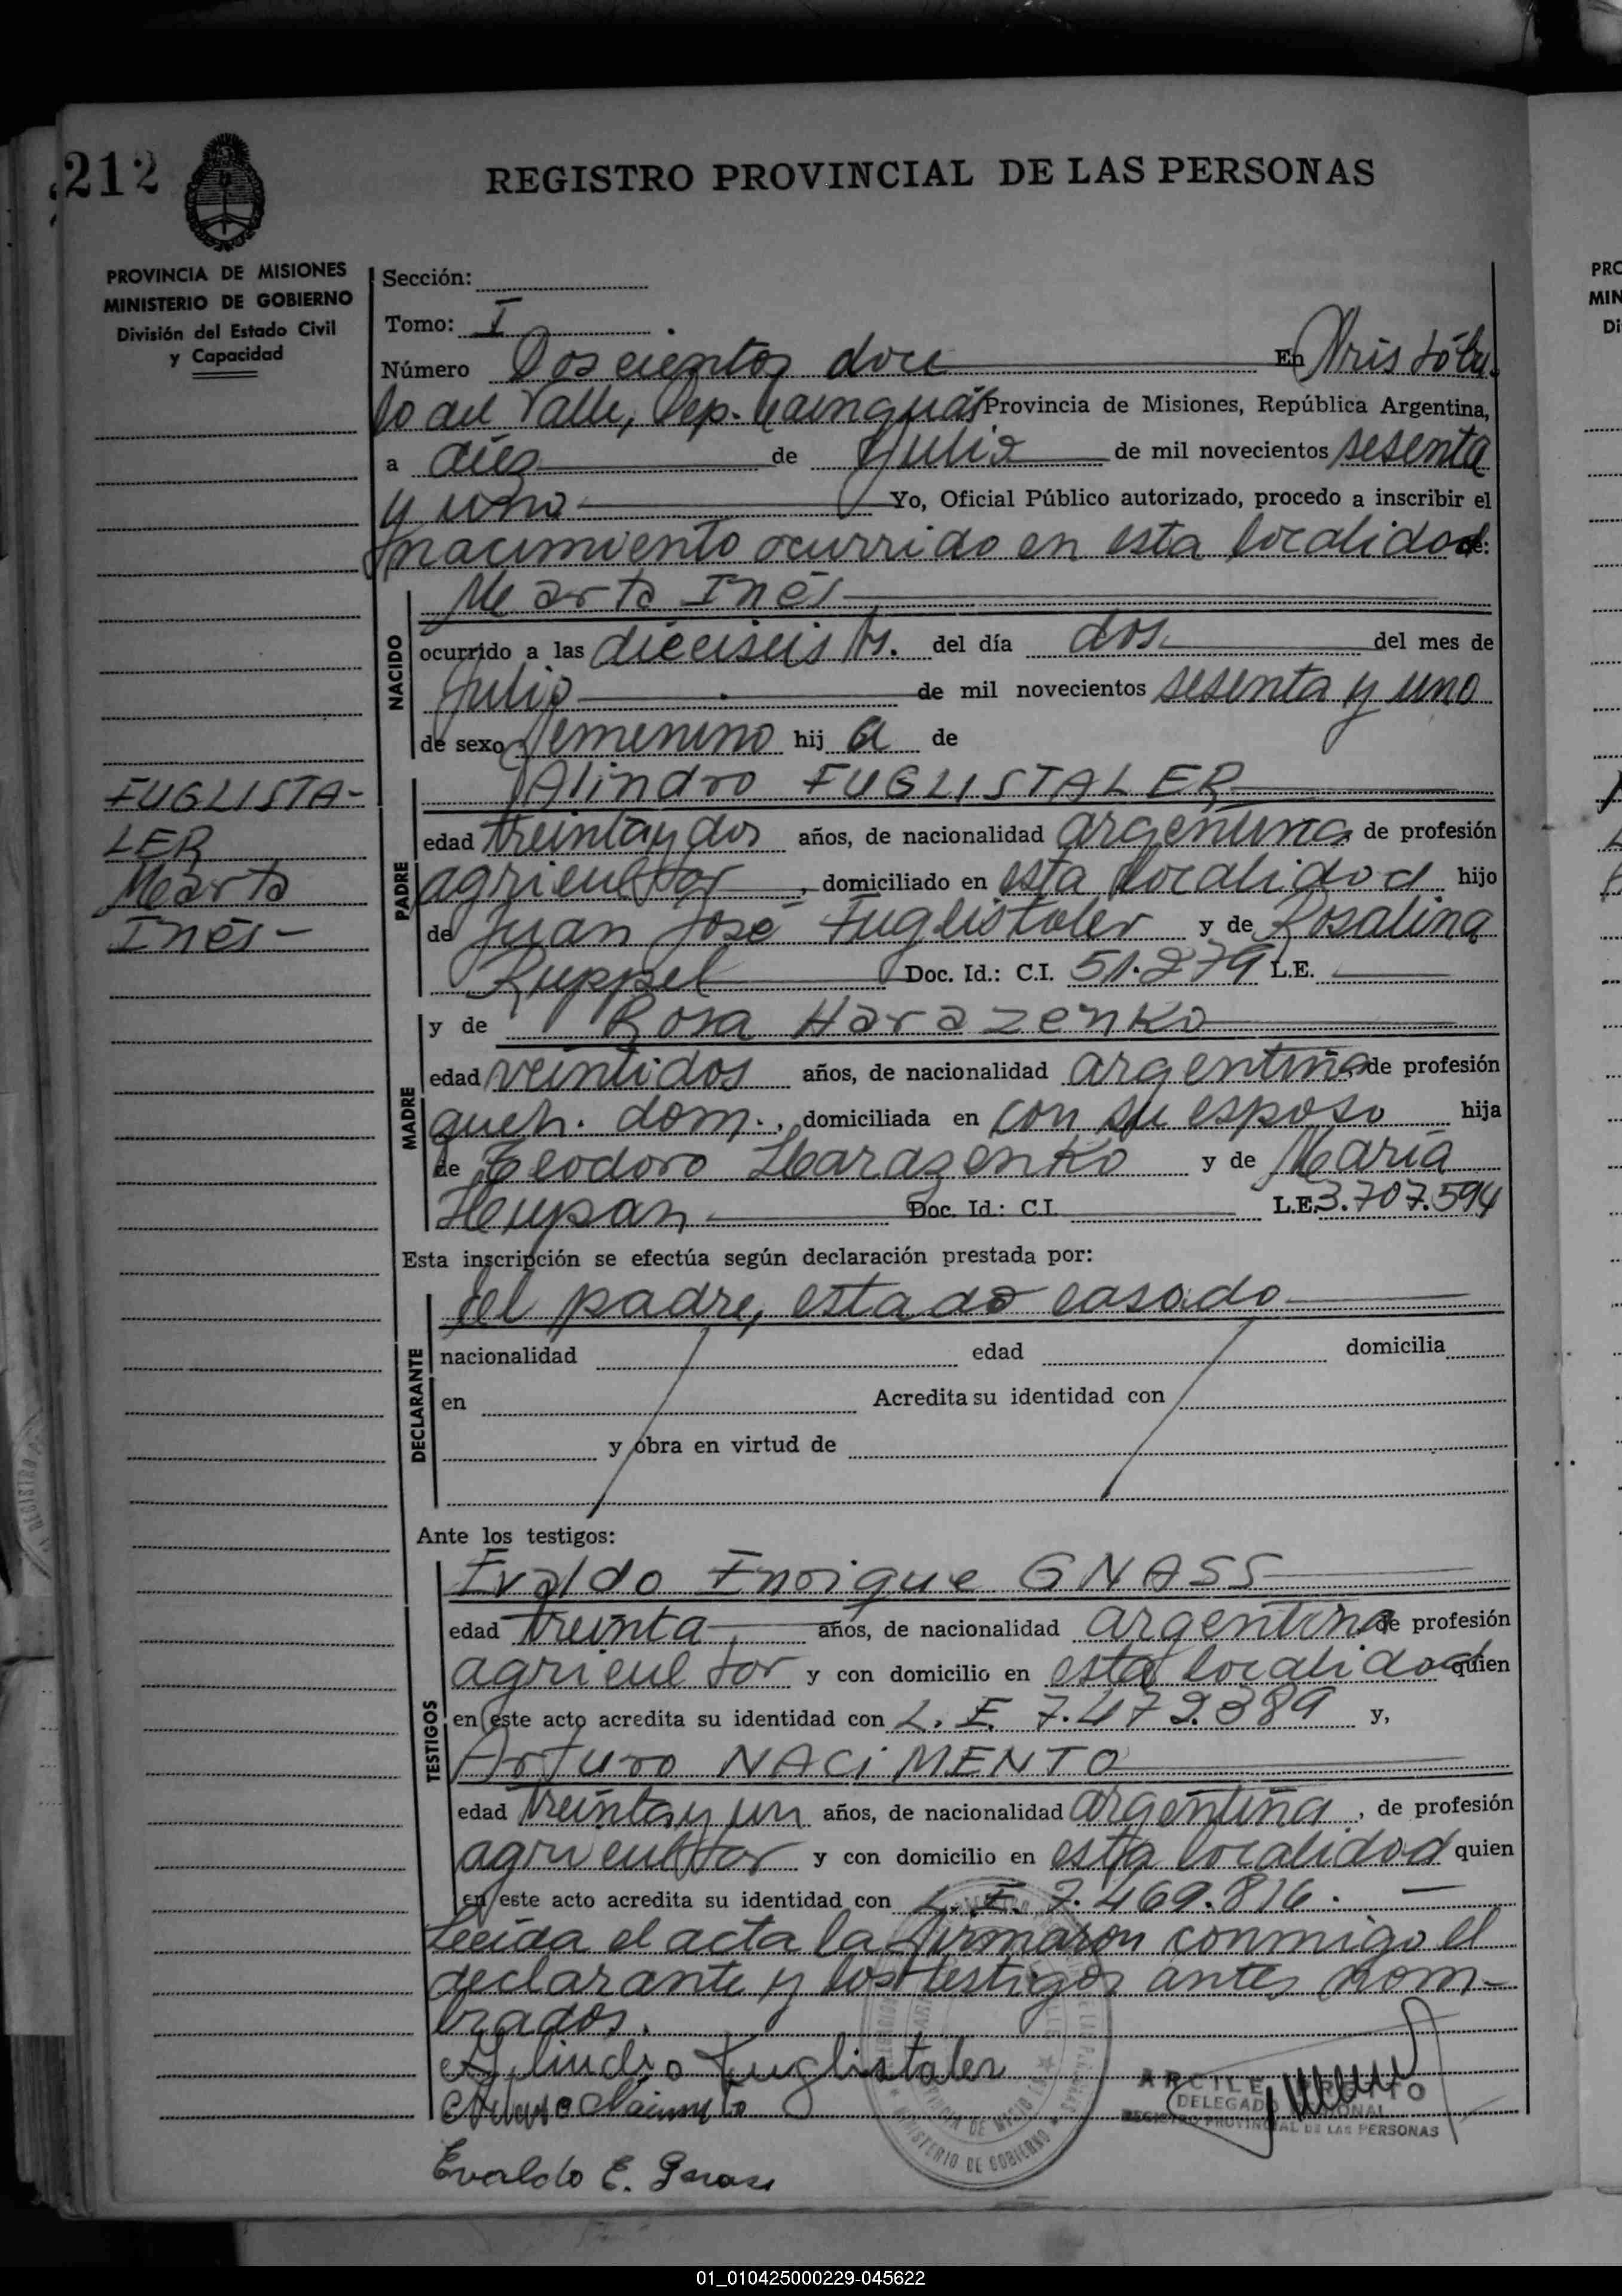 212
REGISTRO PROVINCIAL DE LAS PERSONAS
PROVINCIA DE MISIONES
MINISTERIO DE GOBIERNO
División del Estado Civil
y Capacidad
Sección:
Tomo: I
Número Doscientos doce En Aristóbu-
lo del Valle, Dep. Cainguás Provincia de Misiones, República Argentina,
a diez de Julio de mil novecientos sesenta
y uno Yo, Oficial Público autorizado, procedo a inscribir el
nacimiento ocurrido en esta localidad de:
NACIDO
Marta Inés
ocurrido a las dieciseis hs. del día dos del mes de
Julio de mil novecientos sesenta y uno
de sexo femenino hij a de
FUGLISTA-
LER
Marta
Inés-
PADRE
Alindro FUGLISTALER
edad treinta y dos años, de nacionalidad argentina de profesión
agricultor, domiciliado en esta localidad hijo
de Juan José Fuglistaler y de Rosalina
Ruppel Doc. Id.: C.I. 51.279 L.E.
MADRE
y de Rosa Harazenko
edad veintidos años, de nacionalidad argentina de profesión
queh. dom., domiciliada en con su esposo hija
de Teodoro Harazenko y de María
Heupan Doc. Id.: C.I. L.E. 3.707.594
Esta inscripción se efectúa según declaración prestada por:
DECLARANTE
el padre, estado casado
nacionalidad edad domicilia
en Acredita su identidad con
y obra en virtud de
Ante los testigos:
TESTIGOS
Evaldo Enrique GNASS
edad treinta años, de nacionalidad argentina de profesión
agricultor y con domicilio en esta localidad quien
en este acto acredita su identidad con L. E. 7.472.389 y,
Arturo NACiMENTO
edad treinta y un años, de nacionalidad argentina, de profesión
agricultor y con domicilio en esta localidad quien
en este acto acredita su identidad con L. E. 7.469.816.
Leída el acta la firmaron conmigo el
declarante y los testigos antes nom-
brados.
Alindro Fuglistaler
Arturo Nacimento
Evaldo E. Gnass
DELEGADO
REGISTRO PROVINCIAL DE LAS PERSONAS
MINISTERIO DE GOBIERNO
01_010425000229-045622